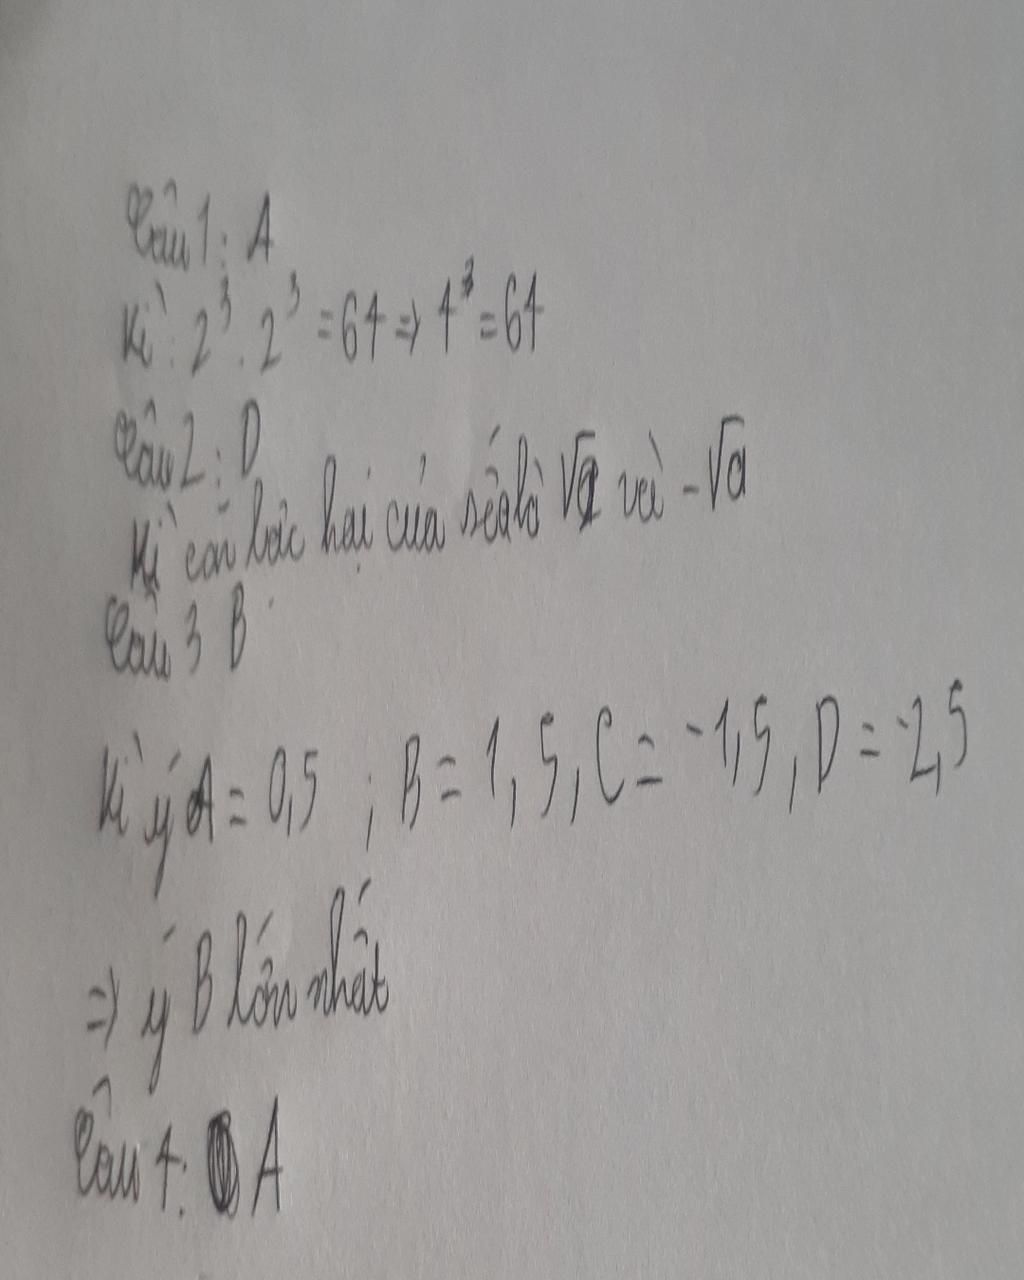 Câu 1: A
Vì: 2³ . 2³ = 64 => 4³ = 64
Câu 2: D
Vì căn bậc hai của số a là √a và -√a
Câu 3 B
Vì ý A = 0,5 ; B = 1,5, C = -1,5, D = -2,5
=> ý B lớn nhất
Câu 4: A